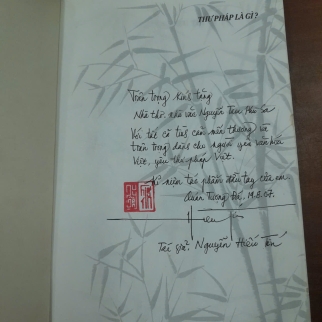 THƯ PHÁP LÀ GÌ?
Trân trọng kính tặng
Nhà thơ, nhà văn Nguyễn
Với tất cả tấm mến thương và
trân trọng dành cho người yêu văn hóa
Việt, yêu thư pháp Việt.
Kỉ niệm tác phẩm đầu tay của em
19.8.07.
Tác giả: Nguyễn Hiếu Tín